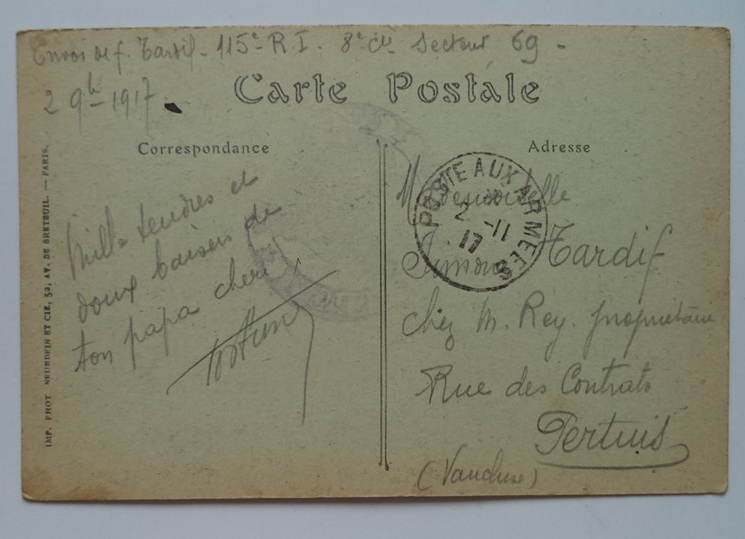 Envoi de f. Tardif - 115e R.I. 8e Cie Secteur 69 -
2 9b - 1917
Carte Postale
Correspondance
Adresse
Mille tendres et
doux baisers de
ton papa cheri
POSTE AUX ARMEES
2 -11
17
Mademoiselle
Simone Tardif
chez M. Rey. propriétaire
Rue des Contrats
Pertuis
(Vaucluse)
IMP. PHOT. NEURDEIN ET CIE, 52, AV. DE BRETEUIL. — PARIS.